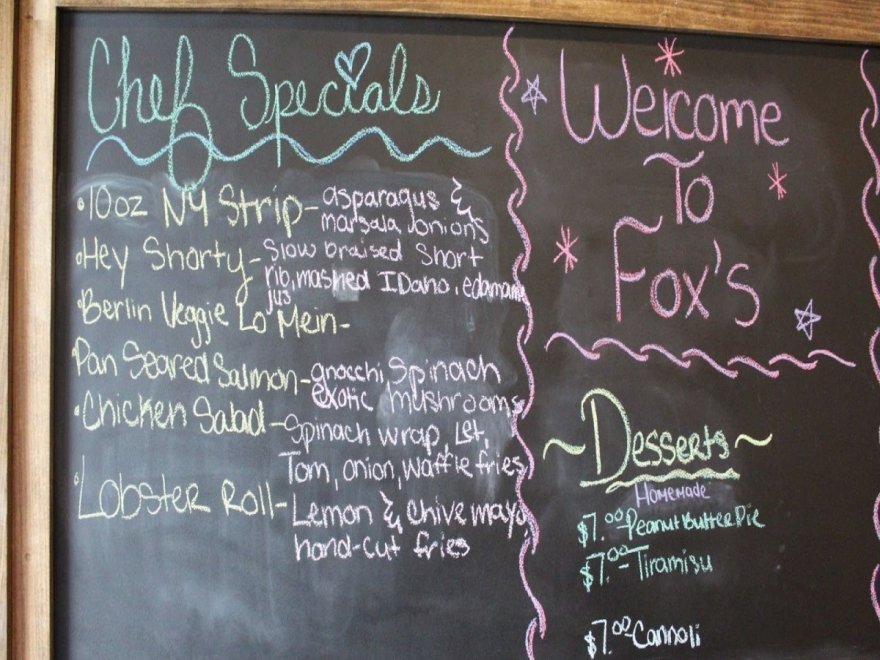 Chef Specials
• 10oz NY Strip- asparagus &
marsala onions
• Hey Shorty- Slow braised Short
rib, mashed IDaho, edamame
jus
• Berlin Veggie Lo Mein-
Pan Seared Salmon- gnocchi, Spinach
exotic mushrooms
• Chicken Salad- Spinach wrap, Let,
Tom, onion, waffle fries
• Lobster Roll- Lemon & Chive mayo
hand-cut fries
Welcome
To
Fox's
~Desserts~
Homemade
$7.00-Peanut Butter Pie
$7.00-Tiramisu
$7.00-Cannoli